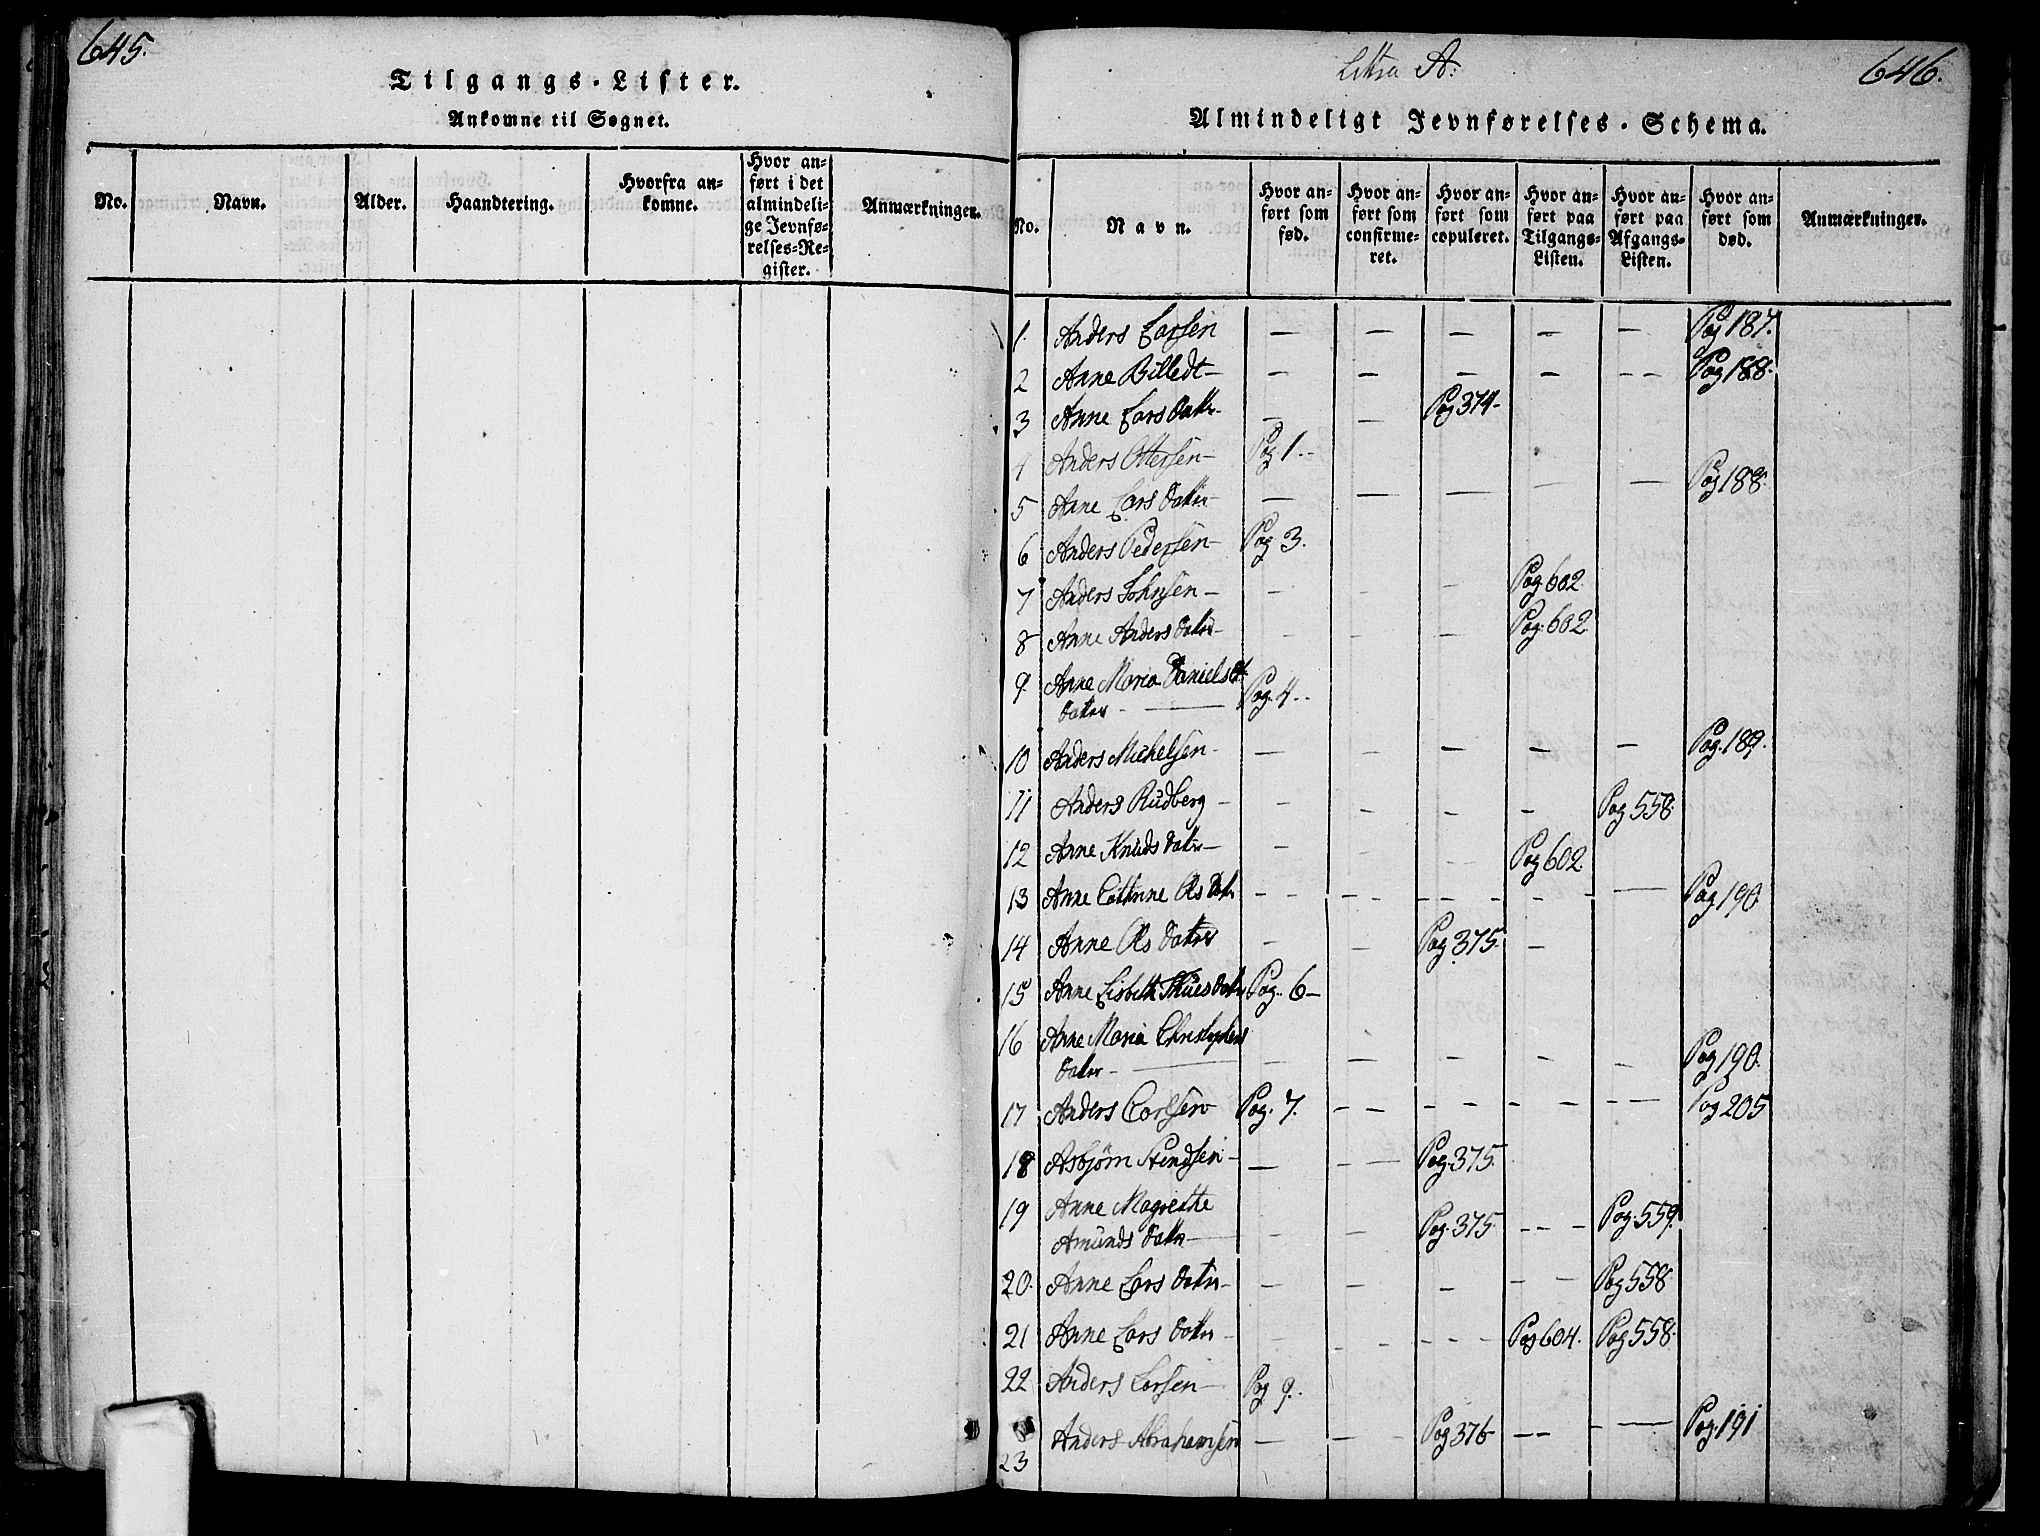 645.
Tilgangs-Lister.
Ankomne til Sognet.
No. Navn. Alder. Haandtering. Hvorfra an=
komne. Hvor an=
ført i det
almindeli=
ge Jevnfø=
relses=Re=
gister. Anmærkninger.
Littra A. 646.
Almindeligt Jevnførelses-Schema.
No. Navn. Hvor an=
ført som
fød. Hvor an=
ført som
confirme=
ret. Hvor an=
ført som
copuleret. Hvor an=
ført paa
Tilgangs=
Listen. Hvor an=
ført paa
Afgangs=
Listen. Hvor an=
ført som
død. Anmærkninger.
1. Anders Larsen — — — — — Pag 187.
2 Anne Billedt — — — — — — Pag 188.
3 Anne Lars Datr. — — Pag 374-
4 Anders Ottersen — Pag 1.-
5 Anne Lars Datr — — — — — — Pag 188.
6 Anders Pedersen — Pag 3.
7 Anders Johnsen — — — — Pag 602
8 Anne Anders Datr — — — — Pag. 602
9. Anne Maria Daniels
Datr — Pag. 4.-
10 Anders Michelsen — — — — — — Pag. 189.
11 Anders Rudberg — — — — — Pag 558
12 Anne Knuds Datr — — — — Pag 602
13 Anne Cathrine Ols Datr — — — — — Pag 190
14 Anne Ols Datr — — Pag 375. —
15 Anne Lisbeth Thües Datr Pag. 6 —
16 Anne Maria Christophers
Datr — — — — — — Pag 190.
17 Anders Carlsen Pag. 7. — — — — Pag 205
18 Asbjørn Stendsen — — — Pag 375.
19 Anne Magrethe
Amunds Datr — — — Pag. 375 — Pag. 559.
20. Anne Lars Datr — — — — — Pag 558
21 Anne Lars Datr — — — — Pag 604. Pag 558.
22 Anders Larsen — Pag 9.
23 Anders Abrahamsen — — Pag 376 — — Pag. 191